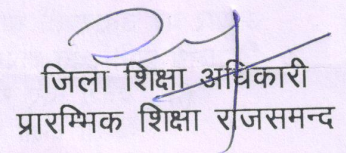 जिला शिक्षा अधिकारी
प्रारम्भिक शिक्षा राजसमन्द